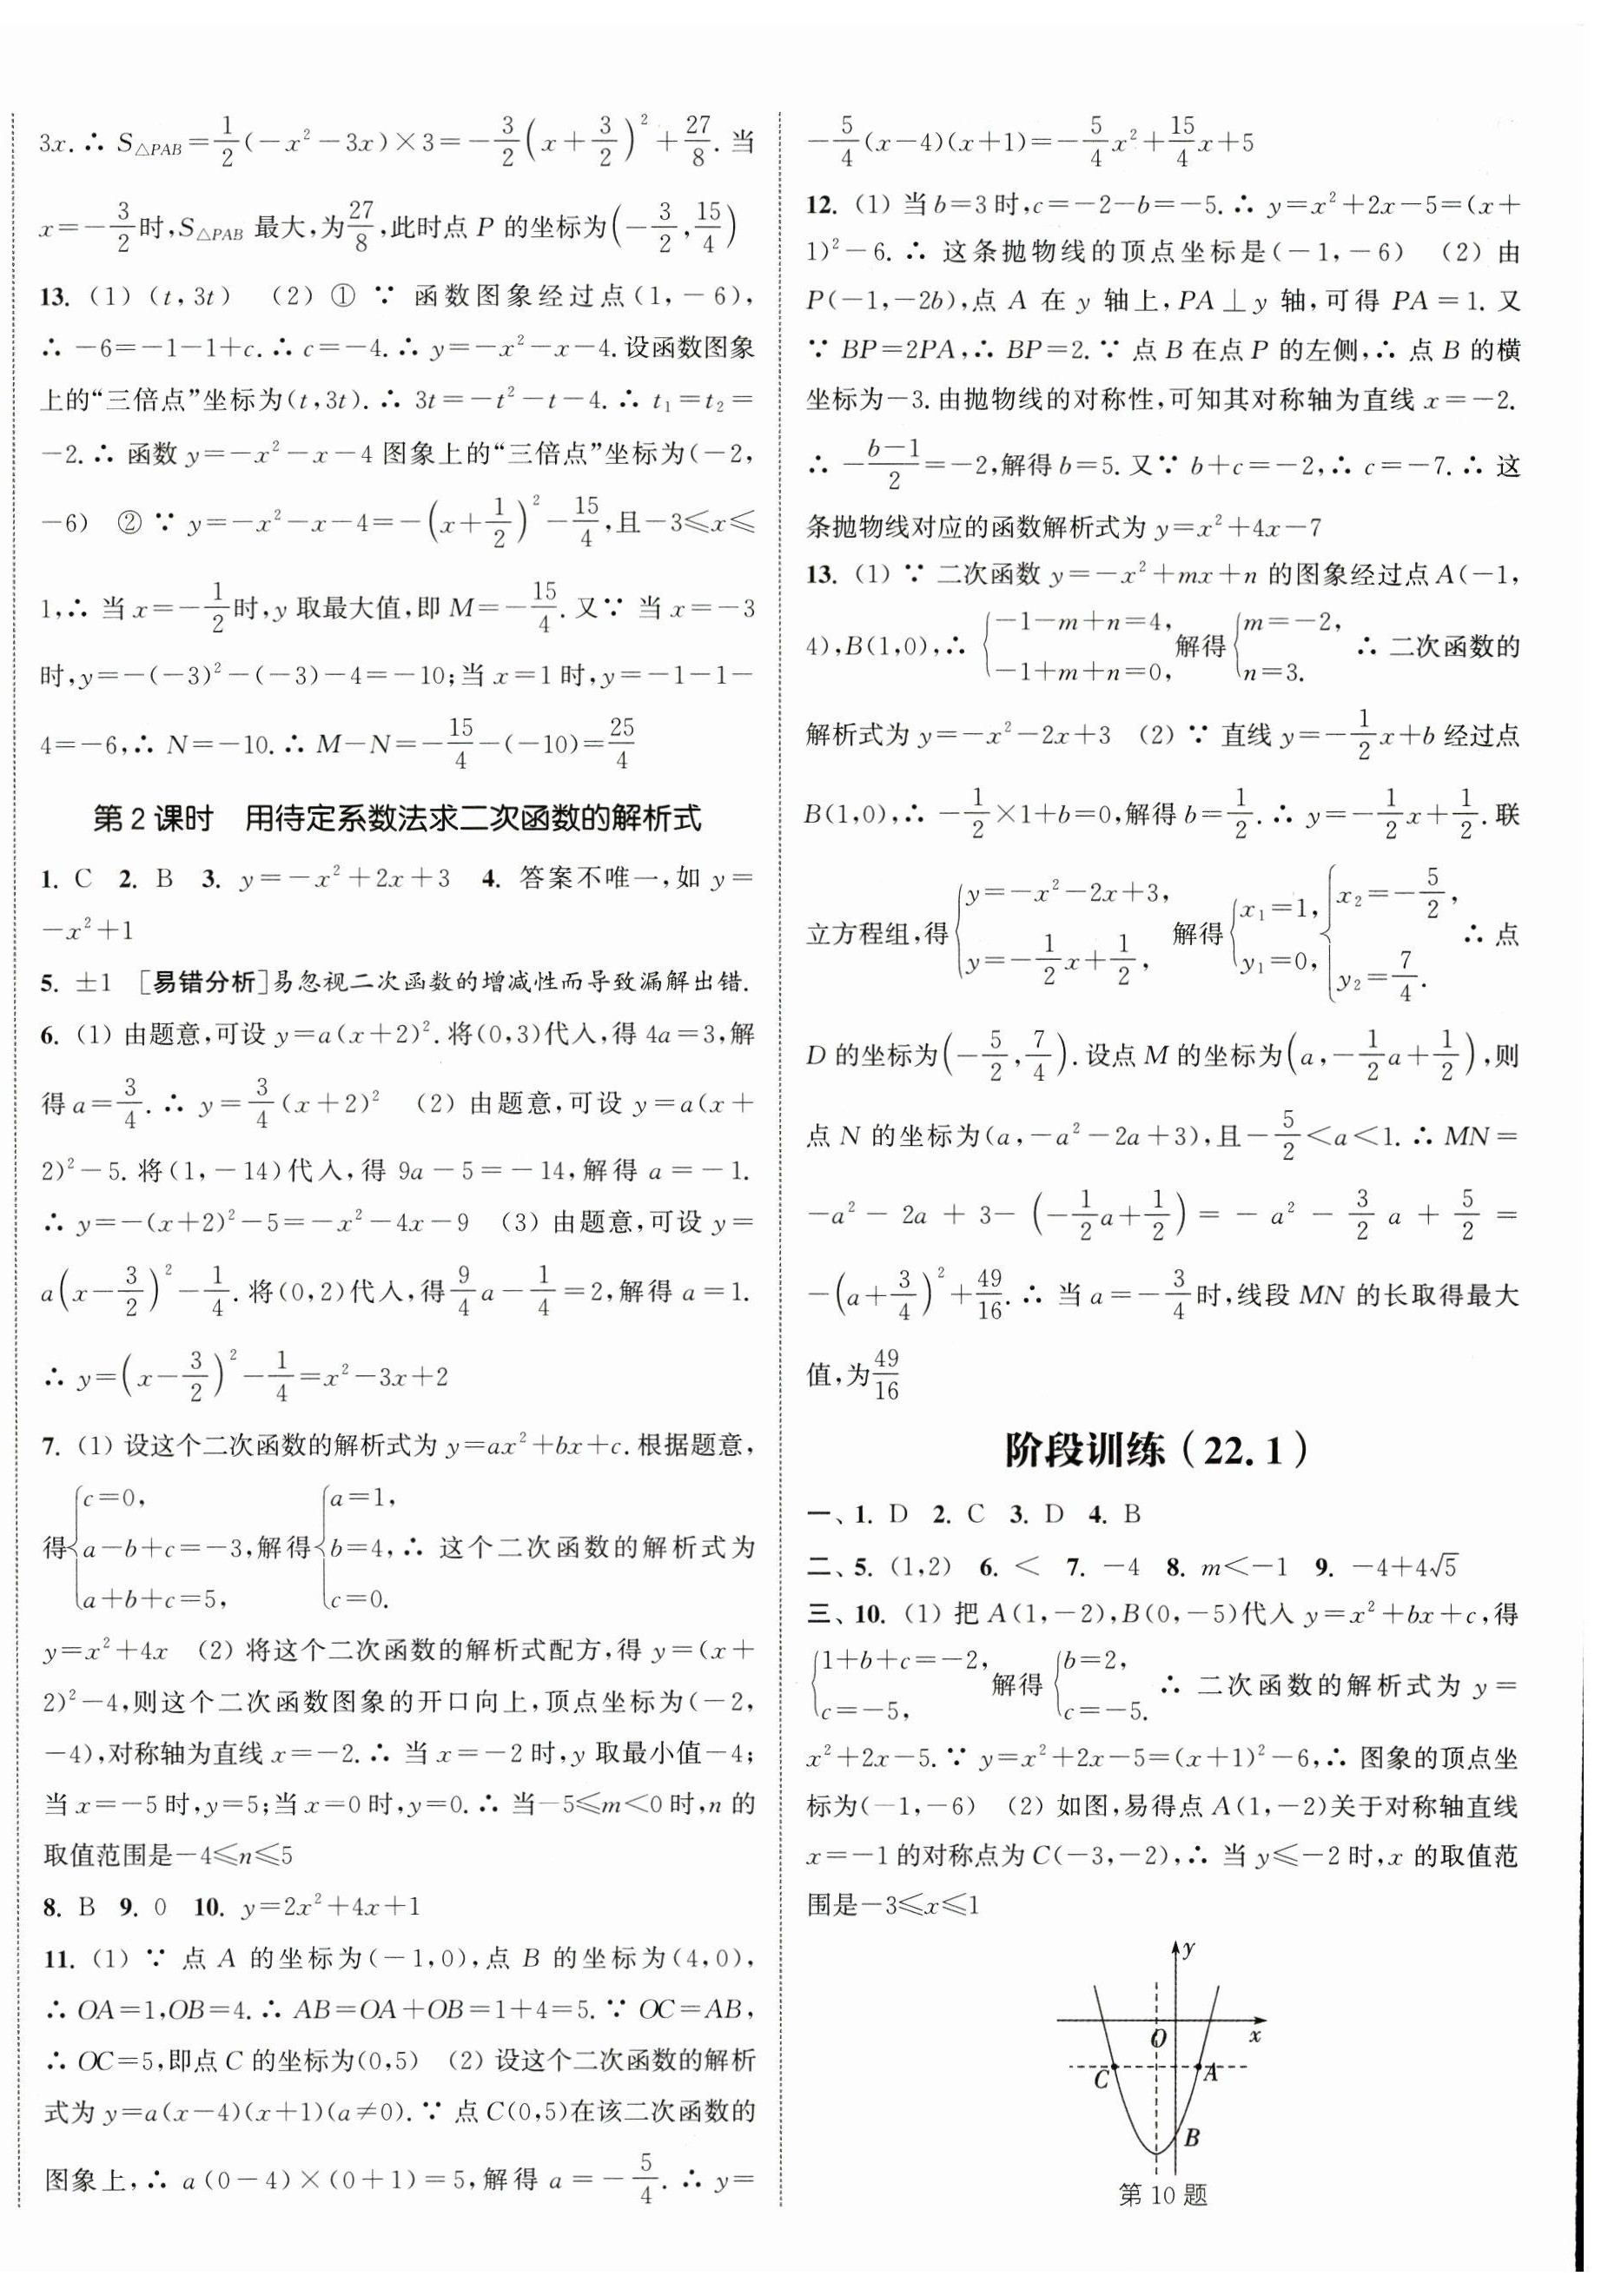 3x.∴ S△PAB=1/2(-x²-3x)×3=-3/2(x+3/2)²+27/8.当
x=-3/2时,S△PAB 最大,为27/8,此时点 P 的坐标为(-3/2,15/4)
13. (1) (t,3t) (2) ① ∵ 函数图象经过点(1,-6),
∴ -6=-1-1+c.∴ c=-4.∴ y=-x²-x-4.设函数图象
上的“三倍点”坐标为(t,3t).∴ 3t=-t²-t-4.∴ t₁=t₂=
-2.∴ 函数 y=-x²-x-4 图象上的“三倍点”坐标为(-2,
-6) ② ∵ y=-x²-x-4=-(x+1/2)²-15/4,且-3≤x≤
1,∴ 当 x=-1/2时,y 取最大值,即 M=-15/4.又∵ 当 x=-3
时,y=-(-3)²-(-3)-4=-10;当 x=1 时,y=-1-1-
4=-6,∴ N=-10.∴ M-N=-15/4-(-10)=25/4
第 2 课时 用待定系数法求二次函数的解析式
1. C 2. B 3. y=-x²+2x+3 4. 答案不唯一,如 y=
-x²+1
5. ±1 [易错分析]易忽视二次函数的增减性而导致漏解出错.
6. (1) 由题意,可设 y=a(x+2)².将(0,3)代入,得 4a=3,解
得 a=3/4.∴ y=3/4(x+2)² (2) 由题意,可设 y=a(x+
2)²-5.将(1,-14)代入,得 9a-5=-14,解得 a=-1.
∴ y=-(x+2)²-5=-x²-4x-9 (3) 由题意,可设 y=
a(x-3/2)²-1/4.将(0,2)代入,得9/4a-1/4=2,解得 a=1.
∴ y=(x-3/2)²-1/4=x²-3x+2
7. (1) 设这个二次函数的解析式为 y=ax²+bx+c.根据题意,
得{c=0, a-b+c=-3, a+b+c=5, 解得{a=1, b=4, c=0. ∴ 这个二次函数的解析式为
y=x²+4x (2) 将这个二次函数的解析式配方,得 y=(x+
2)²-4,则这个二次函数图象的开口向上,顶点坐标为(-2,
-4),对称轴为直线 x=-2.∴ 当 x=-2 时,y 取最小值-4;
当 x=-5 时,y=5;当 x=0 时,y=0.∴ 当-5≤m<0 时,n 的
取值范围是-4≤n≤5
8. B 9. 0 10. y=2x²+4x+1
11. (1) ∵ 点 A 的坐标为(-1,0),点 B 的坐标为(4,0),
∴ OA=1,OB=4.∴ AB=OA+OB=1+4=5.∵ OC=AB,
∴ OC=5,即点 C 的坐标为(0,5) (2) 设这个二次函数的解析
式为 y=a(x-4)(x+1)(a≠0).∵ 点 C(0,5)在该二次函数的
图象上,∴ a(0-4)×(0+1)=5,解得 a=-5/4.∴ y=
-5/4(x-4)(x+1)=-5/4x²+15/4x+5
12. (1) 当 b=3 时,c=-2-b=-5.∴ y=x²+2x-5=(x+
1)²-6.∴ 这条抛物线的顶点坐标是(-1,-6) (2) 由
P(-1,-2b),点 A 在 y 轴上,PA⊥y 轴,可得 PA=1.又
∵ BP=2PA,∴ BP=2.∵ 点 B 在点 P 的左侧,∴ 点 B 的横
坐标为-3.由抛物线的对称性,可知其对称轴为直线 x=-2.
∴ -(b-1)/2=-2,解得 b=5.又∵ b+c=-2,∴ c=-7.∴ 这
条抛物线对应的函数解析式为 y=x²+4x-7
13. (1) ∵ 二次函数 y=-x²+mx+n 的图象经过点 A(-1,
4),B(1,0),∴ {-1-m+n=4, -1+m+n=0, 解得{m=-2, n=3. ∴ 二次函数的
解析式为 y=-x²-2x+3 (2) ∵ 直线 y=-1/2x+b 经过点
B(1,0),∴ -1/2×1+b=0,解得 b=1/2.∴ y=-1/2x+1/2.联
立方程组,得{y=-x²-2x+3, y=-1/2x+1/2, 解得{x₁=1, y₁=0, {x₂=-5/2, y₂=7/4. ∴ 点
D 的坐标为(-5/2,7/4).设点 M 的坐标为(a,-1/2a+1/2),则
点 N 的坐标为(a,-a²-2a+3),且-5/2<a<1.∴ MN=
-a²-2a+3-(-1/2a+1/2)=-a²-3/2a+5/2=
-(a+3/4)²+49/16.∴ 当 a=-3/4时,线段 MN 的长取得最大
值,为49/16
阶段训练(22.1)
一、1. D 2. C 3. D 4. B
二、5. (1,2) 6. < 7. -4 8. m<-1 9. -4+4√5
三、10. (1) 把 A(1,-2),B(0,-5)代入 y=x²+bx+c,得
{1+b+c=-2, c=-5, 解得{b=2, c=-5. ∴ 二次函数的解析式为 y=
x²+2x-5.∵ y=x²+2x-5=(x+1)²-6,∴ 图象的顶点坐
标为(-1,-6) (2) 如图,易得点 A(1,-2)关于对称轴直线
x=-1 的对称点为 C(-3,-2),∴ 当 y≤-2 时,x 的取值范
围是-3≤x≤1
y
O x
C A
B
第 10 题